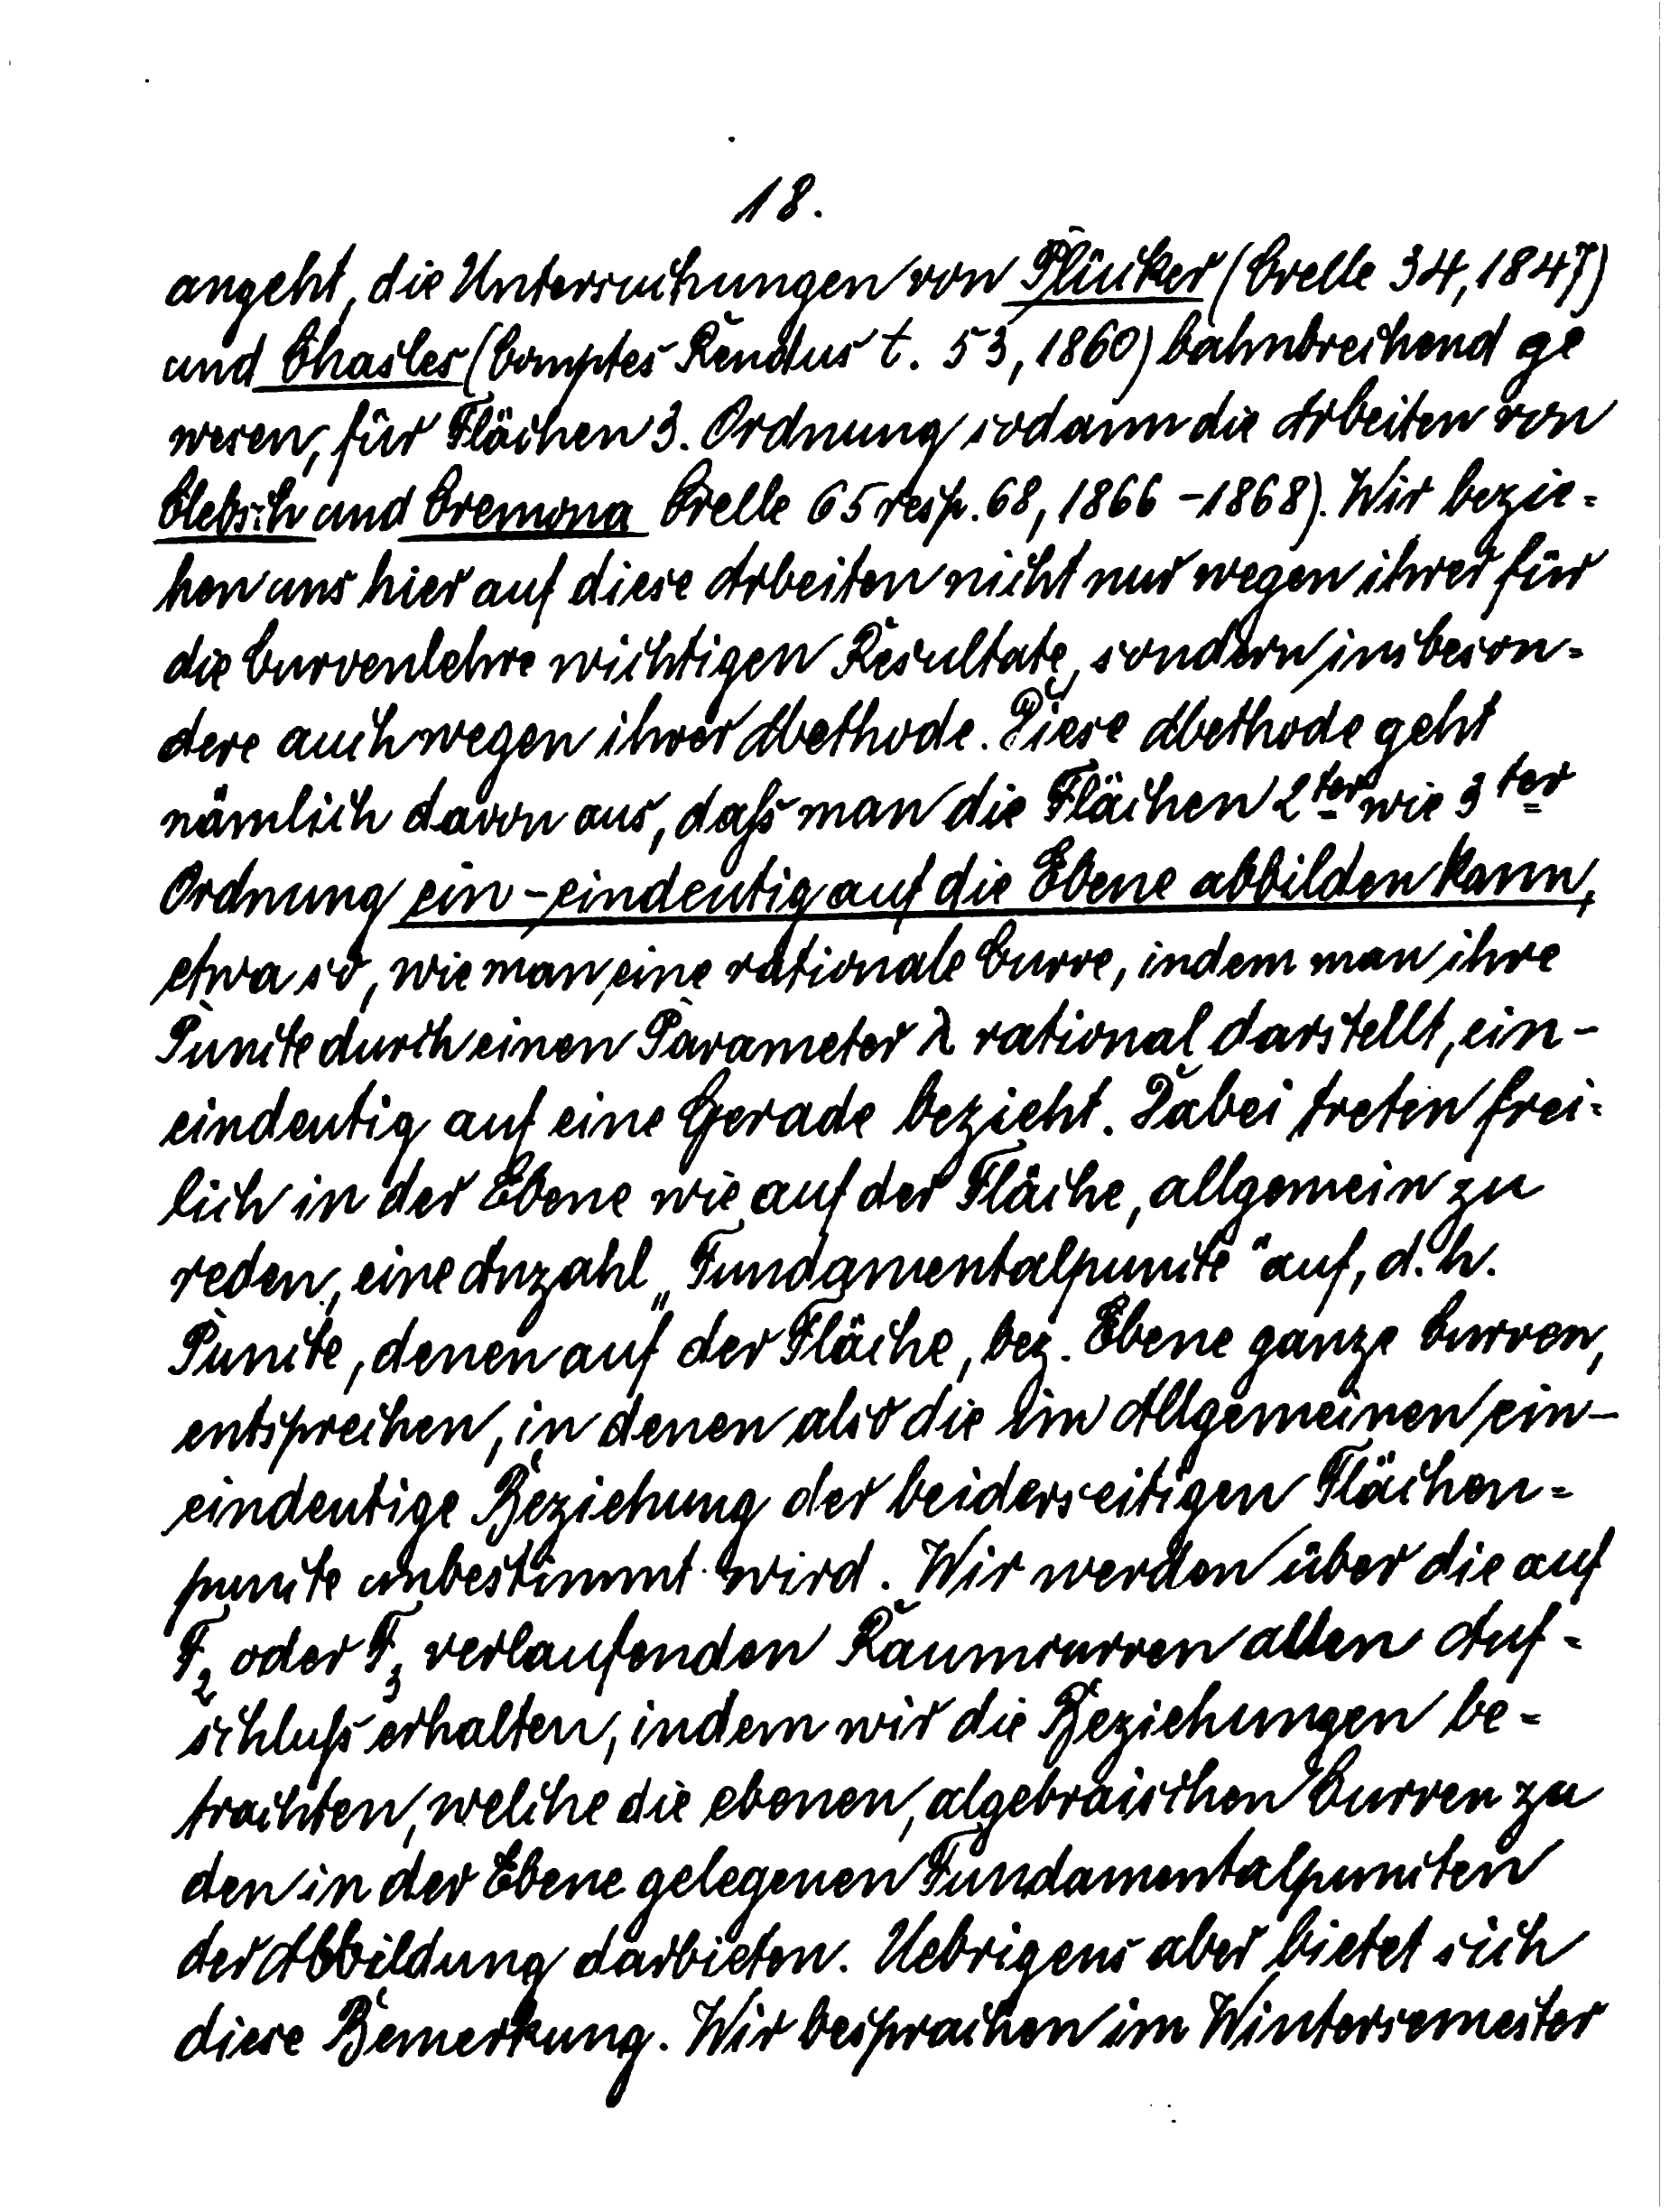 18.
angeht, die Untersuchungen von Plücker (Crelle 34, 1847)
und Chasles (Comptes Rendus t. 53, 1860) bahnbrechend ge
wesen, für Flächen 3. Ordnung sodann die Arbeiten von
Clebsch und Cremona Crelle 65 resp. 68, 1866 - 1868). Wir bezie=
hen uns hier auf diese Arbeiten nicht nur wegen ihrer für
die Curvenlehre wichtigen Resultate, sondern insbeson=
dere auch wegen ihrer Methode. Diese Methode geht
nämlich davon aus, daß man die Flächen 2ter wie 3ter
Ordnung ein-eindeutig auf die Ebene abbilden kann,
etwa so, wie man eine rationale Curve, indem man ihre
Puncte durch einen Parameter λ rational darstellt, ein-
eindeutig auf eine Gerade bezieht. Dabei treten frei=
lich in der Ebene wie auf der Fläche, allgemein zu
reden, eine Anzahl „Fundamentalpuncte" auf, d. h.
Puncte, denen auf der Fläche, bez. Ebene ganze Curven,
entsprechen, in denen also die im Allgemeinen ein-
eindeutige Beziehung der beiderseitigen Flächen=
puncte unbestimmt wird. Wir werden über die auf
F2 oder F3 verlaufenden Raumcurven allen Auf=
schluß erhalten, indem wir die Beziehungen be=
trachten, welche die ebenen, algebraischen Curven zu
den in der Ebene gelegenen Fundamentalpuncten
der Abbildung darbieten. Uebrigens aber bietet sich
diese Bemerkung. Wir besprachen im Wintersemester